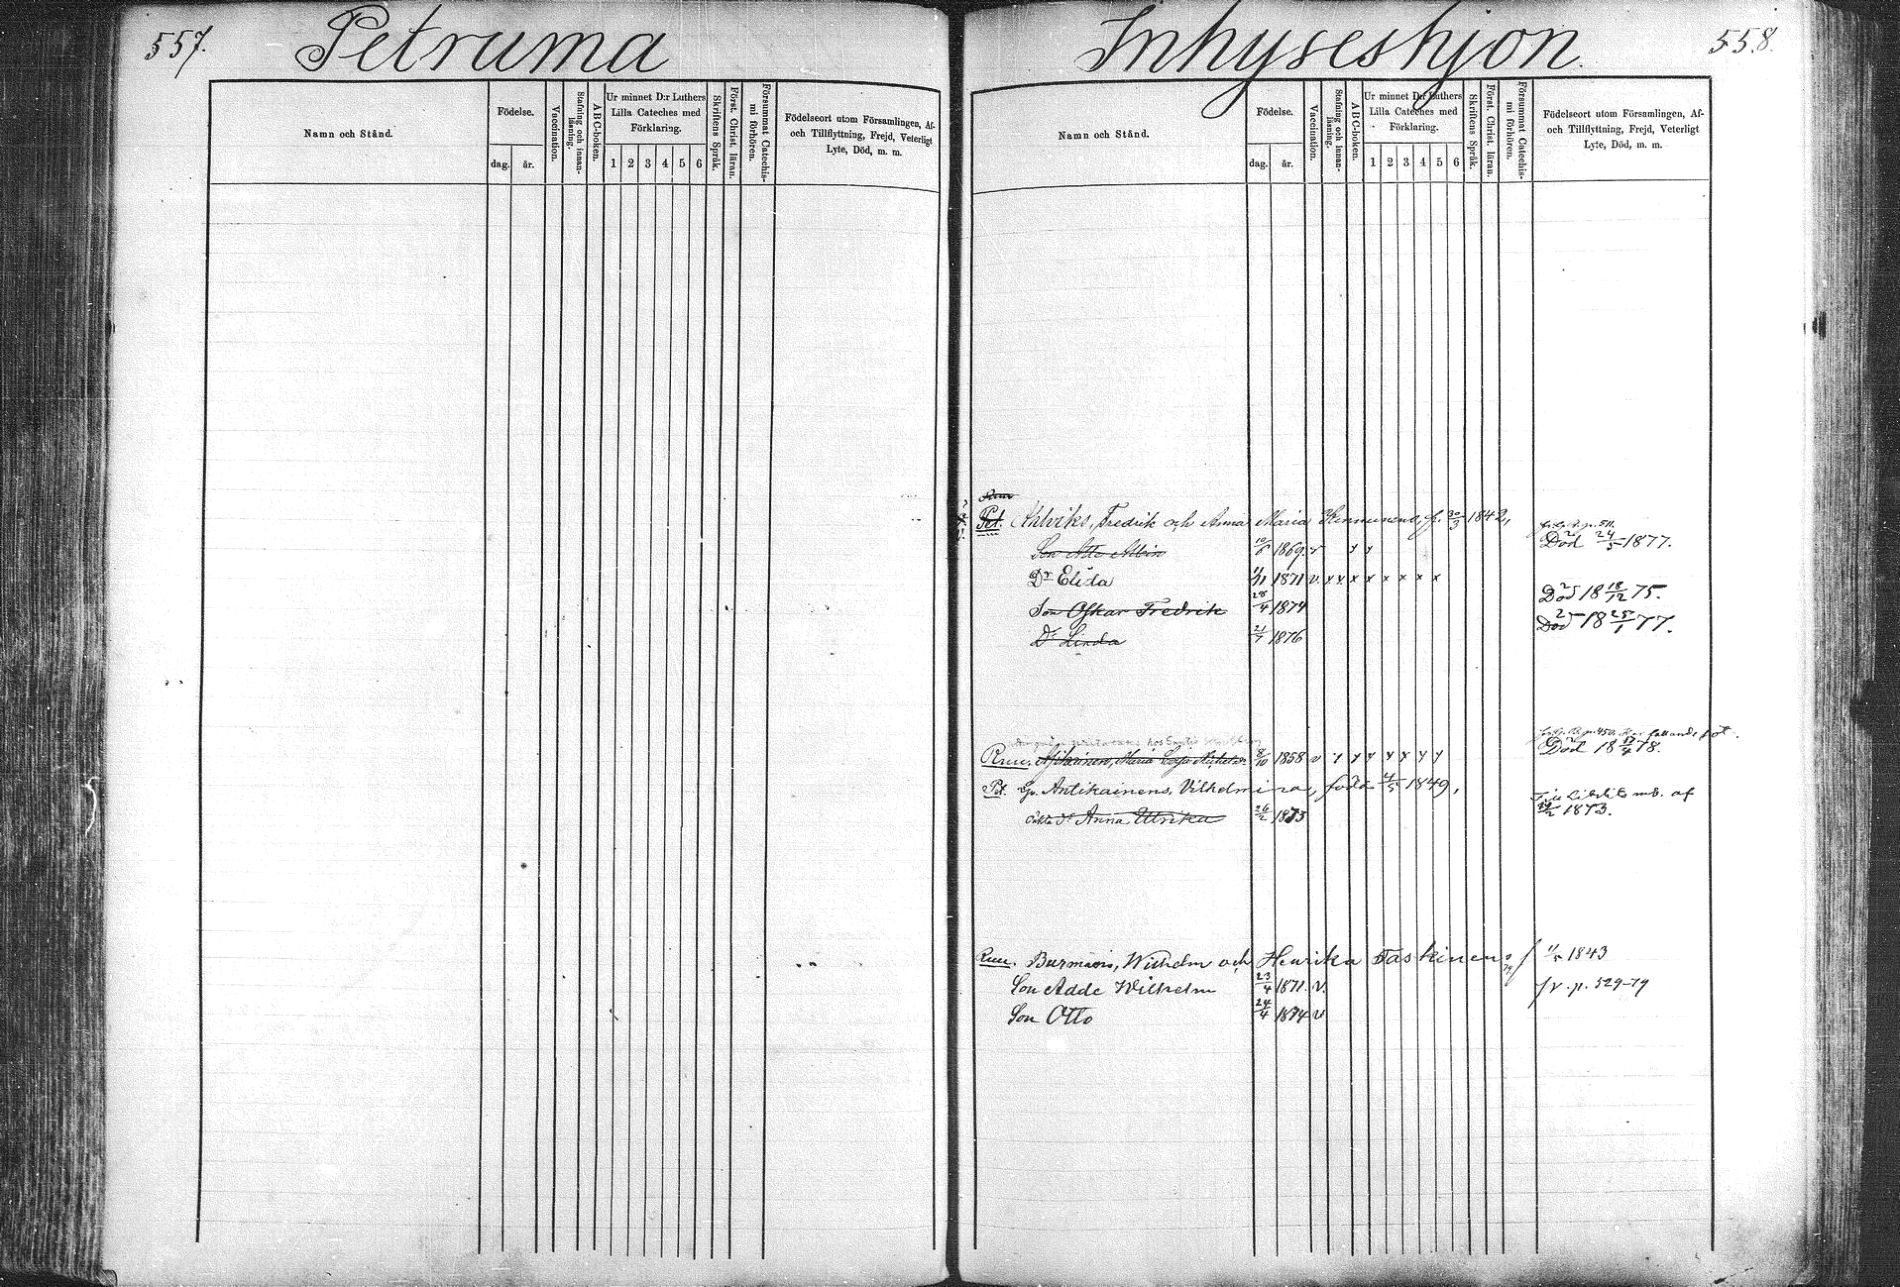 557.
Petruma
Namn och Stånd.
Födelse.
dag.
år.
Vaccination.
Stafning och innan-läsning.
ABC-boken.
Ur minnet D:r Luthers
Lilla Cateches med
Förklaring.
1 2 3 4 5 6
Skriftens Språk.
Först. Christ. läran.
Försummat Catechis-
mi förhören.
Födelseort utom Församlingen, Af-
och Tillflyttning, Frejd, Veterligt
Lyte, Död, m. m.
Inhyseshjon.
558.
Namn och Stånd.
Födelse.
dag.
år.
Vaccination.
Stafning och innan-läsning.
ABC-boken.
Ur minnet D:r Luthers
Lilla Cateches med
Förklaring.
1 2 3 4 5 6
Skriftens Språk.
Först. Christ. läran.
Försummat Catechis-
mi förhören.
Födelseort utom Församlingen, Af-
och Tillflyttning, Frejd, Veterligt
Lyte, Död, m. m.
Pet. Fredrik och Anna Maria f. 30/3 1842,
Son Otto Albin 10/6 1869. Död 24/5 1877.
Dr Elida 11/11 1871 v. x x x x x x x x
Son Oskar Fredrik 28/4 1874 Död 18 18/12 75.
Dr Linda 21/7 1876 Död 18 25/1 77.
Maria 8/10 1858 v Död 18 /4 78.
Pet. Antikainens, Vilhelmina, född 4/5 1849,
dr Anna Ulrika 26/2 1873 1873.
Burmans, Wilhelm och Henrika Taskinens f 11/5 1843
Son Adde Wilhelm 23/4 1871. v. p. 529-79
Son Otto 24/4 1874 v